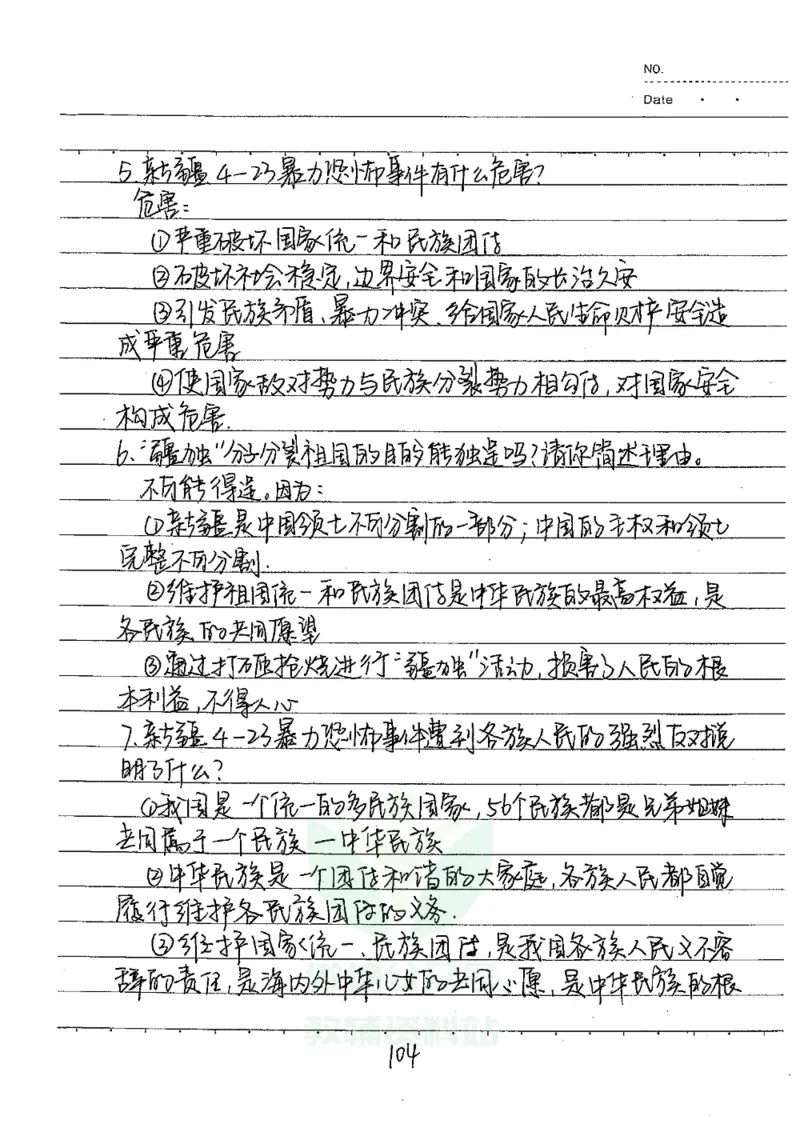 NO.
Date
5.新疆4-23暴力恐怖事件有什么危害?
危害:
①严重破坏国家统一和民族团结
②破坏社会稳定,边界安全和国家的长治久安
③引发民族矛盾、暴力冲突、给国家人民生命财产安全造
成严重危害
④使国家敌对势力与民族分裂势力相勾结,对国家安全
构成危害.
6、“疆独”分子分裂祖国的目的能独逞吗?请你简述理由。
不可能得逞。因为:
①新疆是中国领土不可分割的一部分;中国的主权和领土
完整不可分割.
②维护祖国统一和民族团结是中华民族的最高权益,是
各民族的共同愿望
③通过打砸抢烧进行“疆独”活动,损害了人民的根
本利益,不得人心
7.新疆4-23暴力恐怖事件遭到各族人民的强烈反对说
明了什么?
①我国是一个统一的多民族国家,56个民族都是兄弟姐妹
共同属于一个民族—中华民族
②中华民族是一个团结和谐的大家庭,各族人民都自觉
履行维护各民族团结的义务.
③维护国家统一、民族团结,是我国各族人民义不容
辞的责任,是海内外中华儿女的共同心愿,是中华民族的根
教辅资料站
104